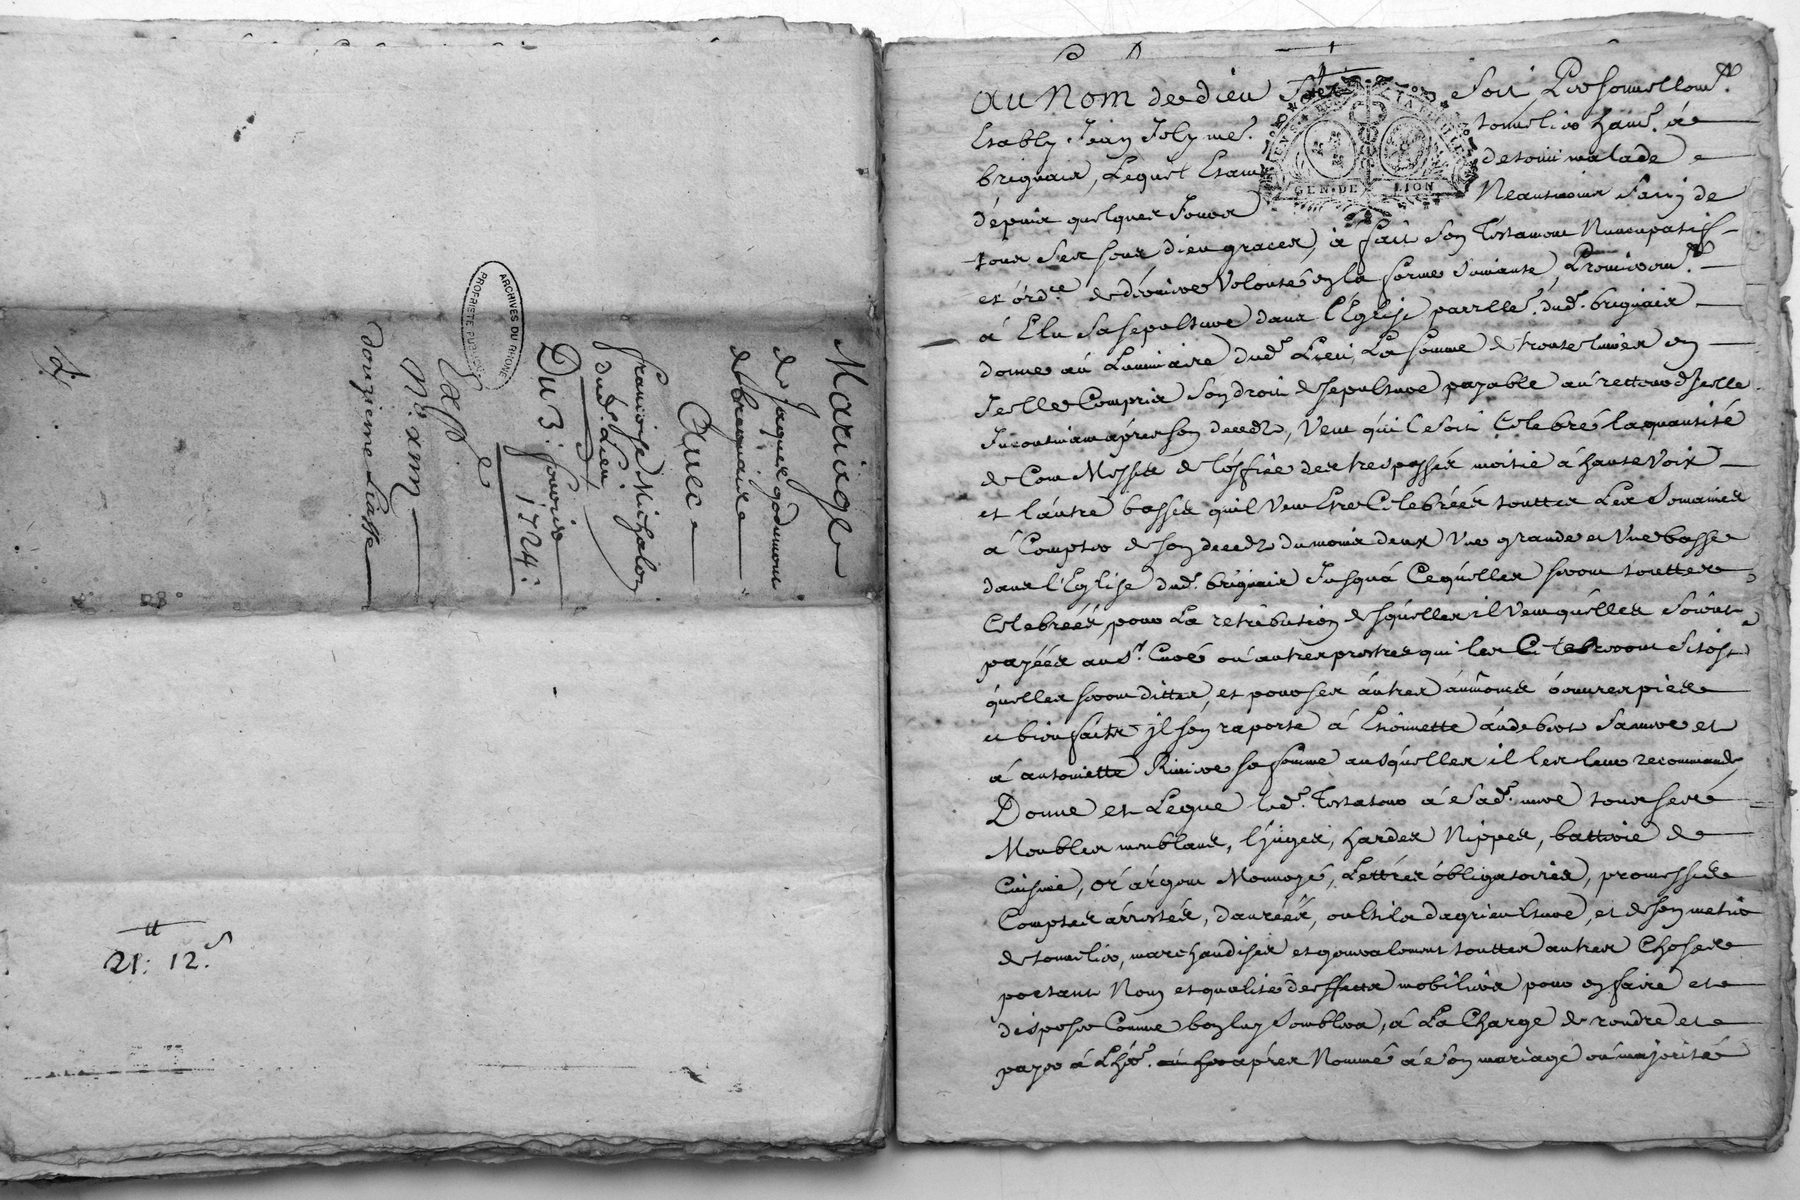 Mariage
de Jaques godemont
de brignaire
Avec
francoise Michalon
dud. Lieu
Du 3: fevrie
1724:
Exp.e
No. xm
douzieme Liasse
ARCHIVES DU RHONE
PROPRIETE PUBLIQUE
21: 12.s
Au Nom de dieu Soit Personnellemt.
Estably Jean Joly me. tonnelier hant. à
brignais, Lequel Estant detenu malade
dépuis quelques Jours Neantmoins Sain de
tous Ses sens dieu graces, à fait Son Testament Nuncupatif
et ord.re de derniere Volonté en la forme Suivante, Premieremt.
à Elu Sa sepulture dans l'Eglise parrlle. dud. brignais
donne au Luminaire dud. Lieu, La somme de trente livres en
Jcelle Compris Son droit de sepulture payable au rettour d'Jcelle
Jncontinant aprés son deceds, Veut qu'il Soit Celebré la quantité
de Cent Messes de l'office des trespassés moitié à haute Voix
et l'autre basses qu'il Veut Etre Celebréés touttes Les Semaines
à Compter de son deceds du moins deux Une grande et Une basse
dans l'Eglise dud. brignais Jusqu'à Cequ'elles seront touttes
Celebréés, pour La retribution desquelles il Veut qu'elles Soient
payéés au Sr. Curé ou autres prestres qui les Celebreront Sitost
qu'elles seront dittes, et pour ses autres aumones oeuvres pies
et bienfaits il s'en raporte à Etiennette audebert Sa mere et
à antoinette Riviere sa femme ausquelles il les leur recommande
Donne et Legue led. Testateur à Sad. mere tous ses
Meubles meublans, linges, hardes Nippes, batterie de
Cuisine, or argent Monnoyé, Lettres obligatoires, promesses
Comptes arrestés, danréés, outils d'agriculture, et de son metier
de tonnelier, marchandises et generalement touttes autres Choses
portant Nom et qualité d'effects mobiliers pour en faire et
disposer Comme bon luy Semblera, à La Charge de rendre et
payer à L'her. aprés Nommé à Son mariage ou majorité
GEN. DE LION